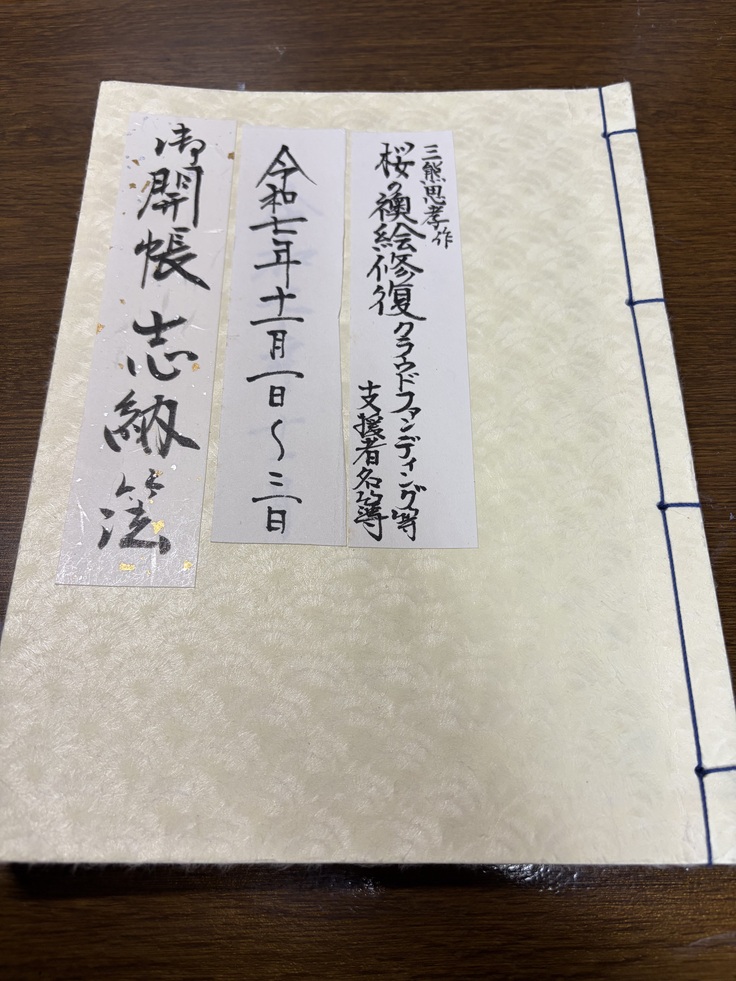 三熊思孝作
桜の襖絵修復クラウドファンディング等
支援者名簿
令和七年十一月一日～三日
御開帳志納簿